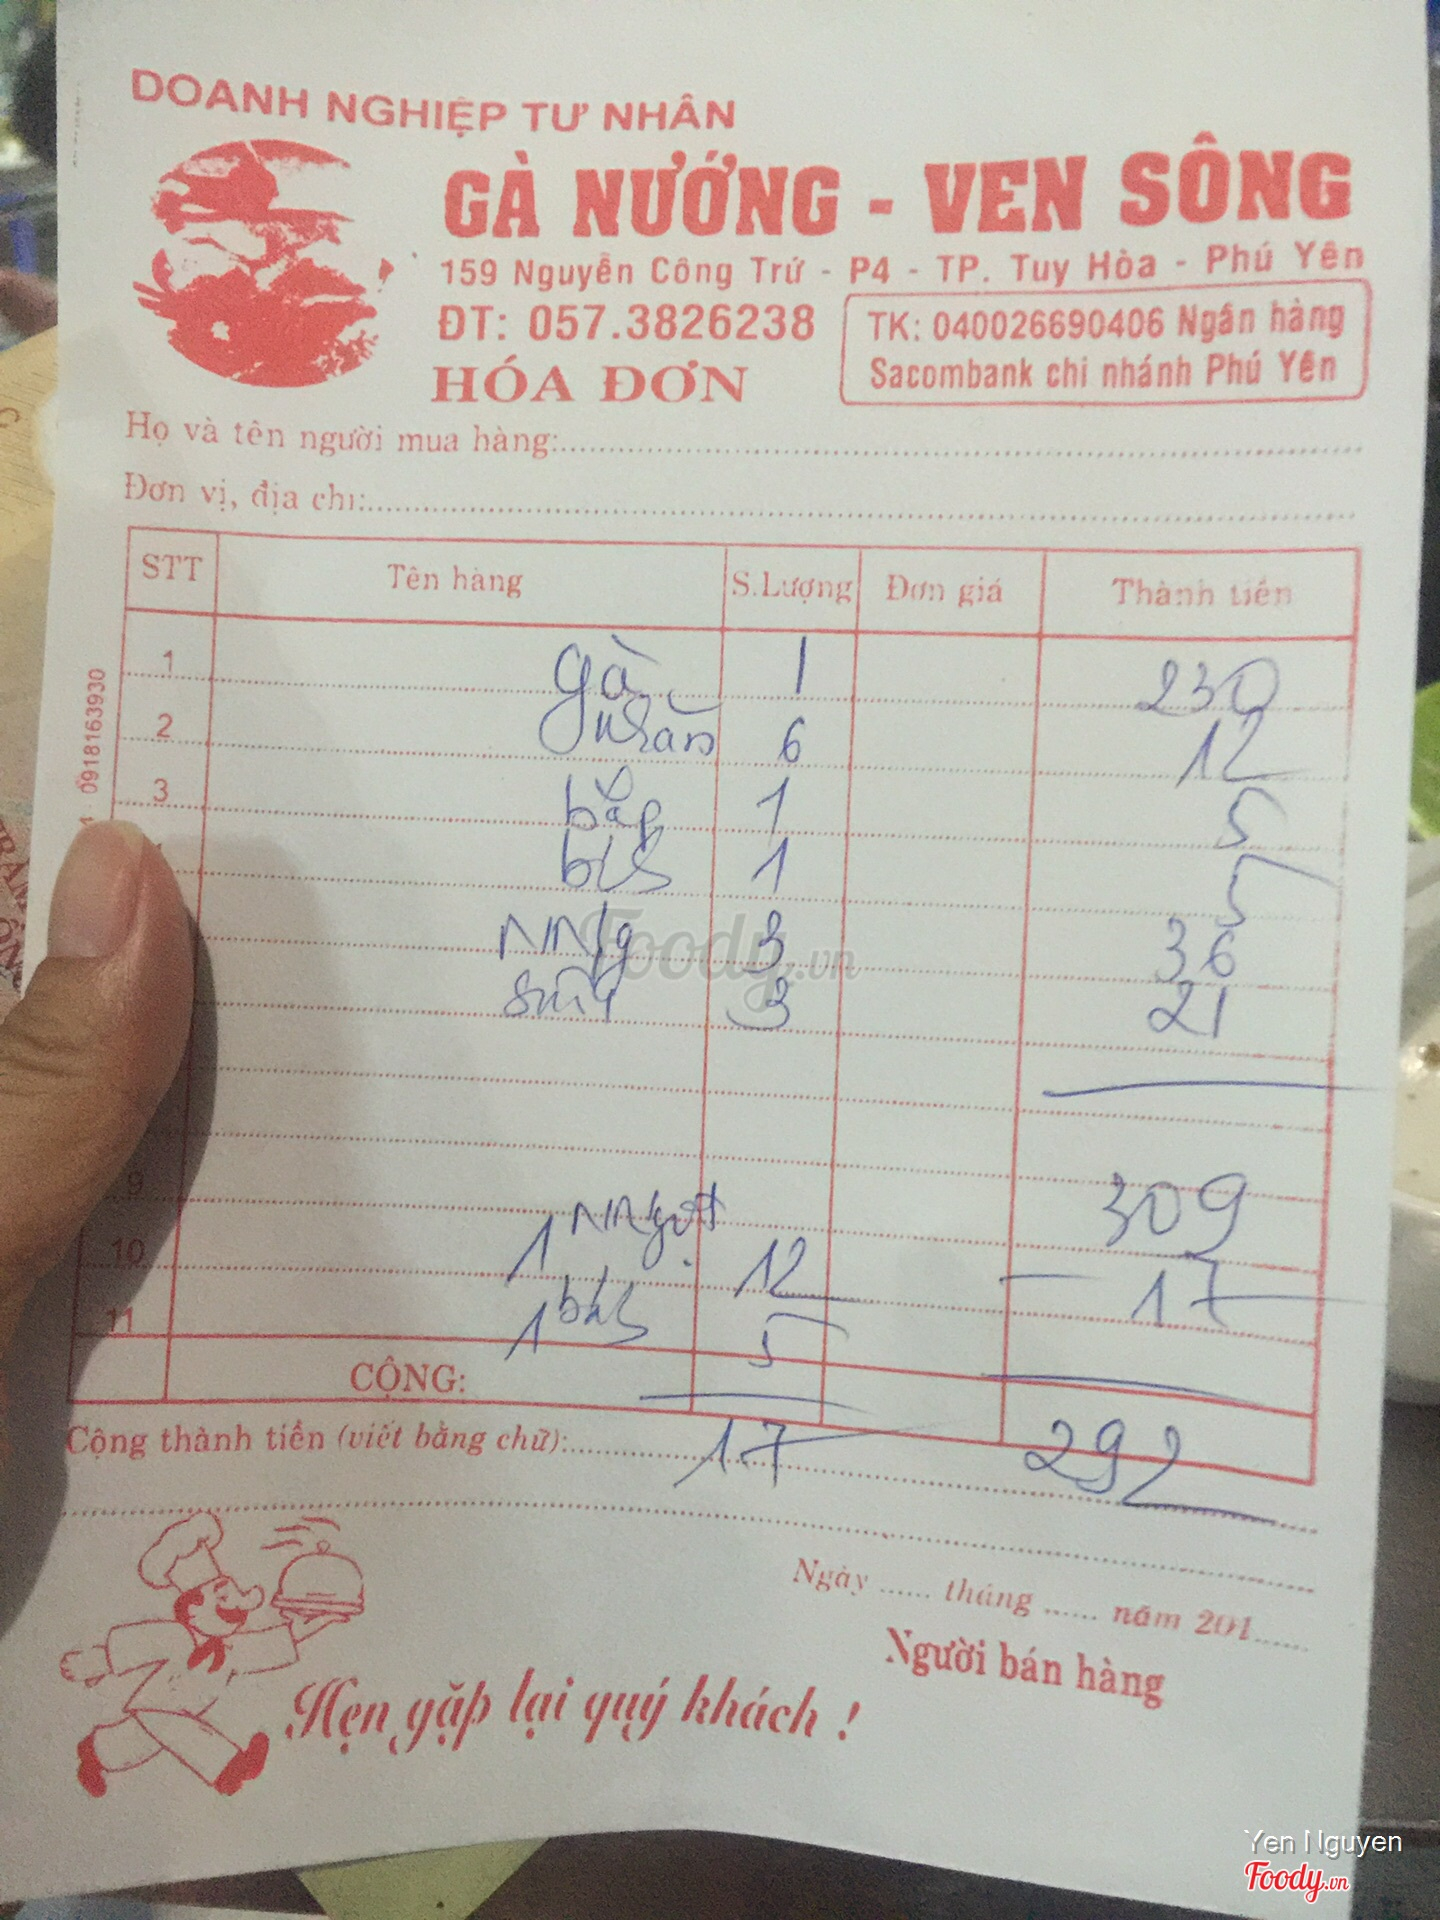 DOANH NGHIỆP TƯ NHÂN
GÀ NƯỚNG - VEN SÔNG
159 Nguyễn Công Trứ - P4 - TP. Tuy Hòa - Phú Yên
ĐT: 057.3826238
TK: 040026690406 Ngân hàng
Sacombank chi nhánh Phú Yên
HÓA ĐƠN
Họ và tên người mua hàng:
Đơn vị, địa chỉ:
STT Tên hàng S.Lượng Đơn giá Thành tiền
1 gà 1 230
2 6 12
3 bắp 1 5
1 5
3 36
3 21
309
9
10 1 NNgọt 12 17
11 1 5
CỘNG:
Cộng thành tiền (viết bằng chữ): 17 292
Ngày ...... tháng ...... năm 201......
Người bán hàng
Hẹn gặp lại quý khách !
0918163930
Foody.vn
Yen Nguyen
Foody.vn